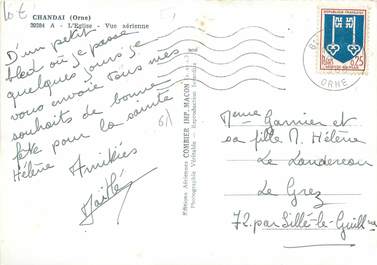 10 €
CHANDAI (Orne)
20284 A - L'Eglise - Vue aérienne
D'un petit
où je passe
quelques jours je
vous envoie tous mes
souhaits de bonne
fête pour la sainte
Hélène
Amitiés
Editions Aériennes COMBIER IMP. MACON
Photographie Véritable - Reproduction
REPUBLIQUE FRANÇAISE
0,25
ORNE
Mme Garnier et
sa fille M. Hélène
Le Landereau
Le Grez
72. par Sillé-le-Guillme